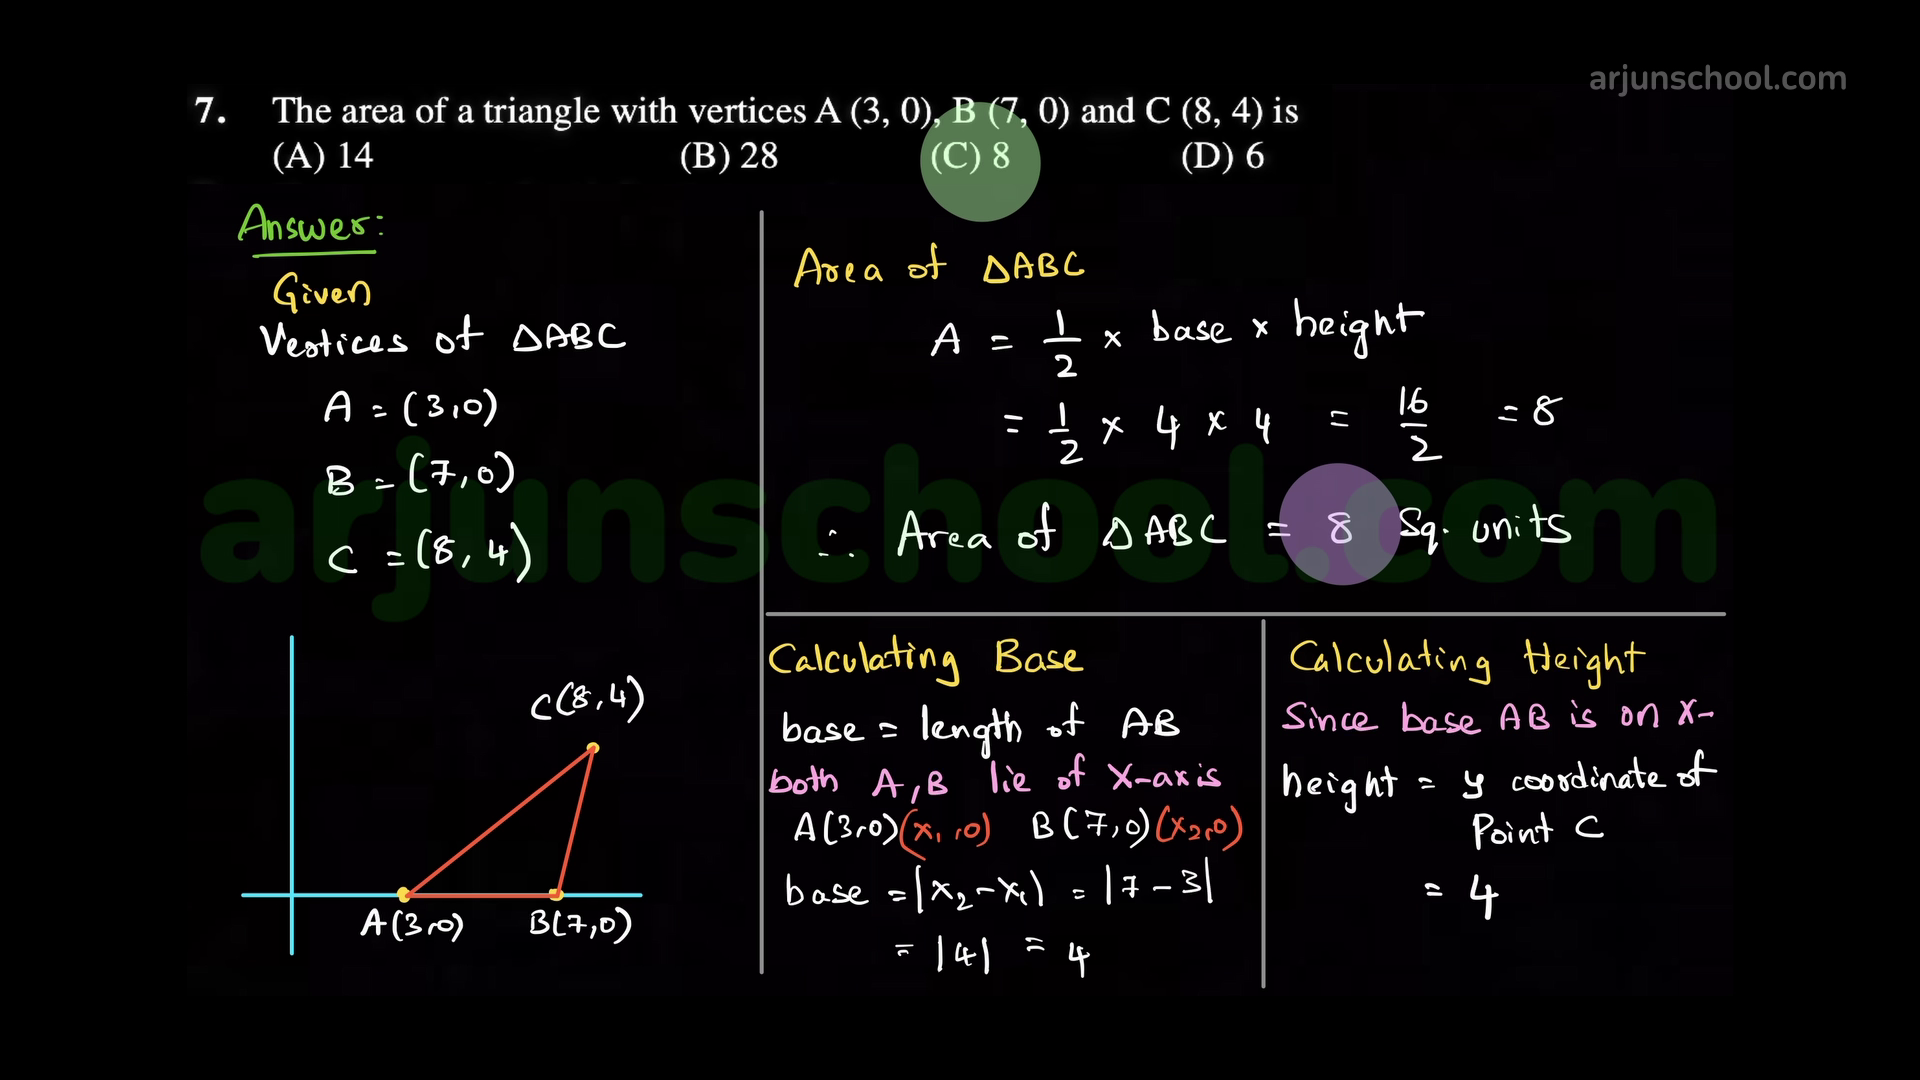 arjunschool.com
7. The area of a triangle with vertices A (3, 0), B (7, 0) and C (8, 4) is
(A) 14 (B) 28 (C) 8 (D) 6
Answer:
Given
Vertices of △ABC
A = (3,0)
B = (7,0)
C = (8, 4)
C(8,4)
A(3,0) B(7,0)
Area of △ABC
A = 1/2 × base × height
= 1/2 × 4 × 4 = 16/2 = 8
∴ Area of △ABC = 8 Sq. units
arjunschool.com
Calculating Base
base = length of AB
both A,B lie of X-axis
A(3,0)(x₁,0) B(7,0)(x₂,0)
base = |x₂-x₁) = |7-3|
= |4| = 4
Calculating Height
Since base AB is on X-
height = y coordinate of
Point C
= 4